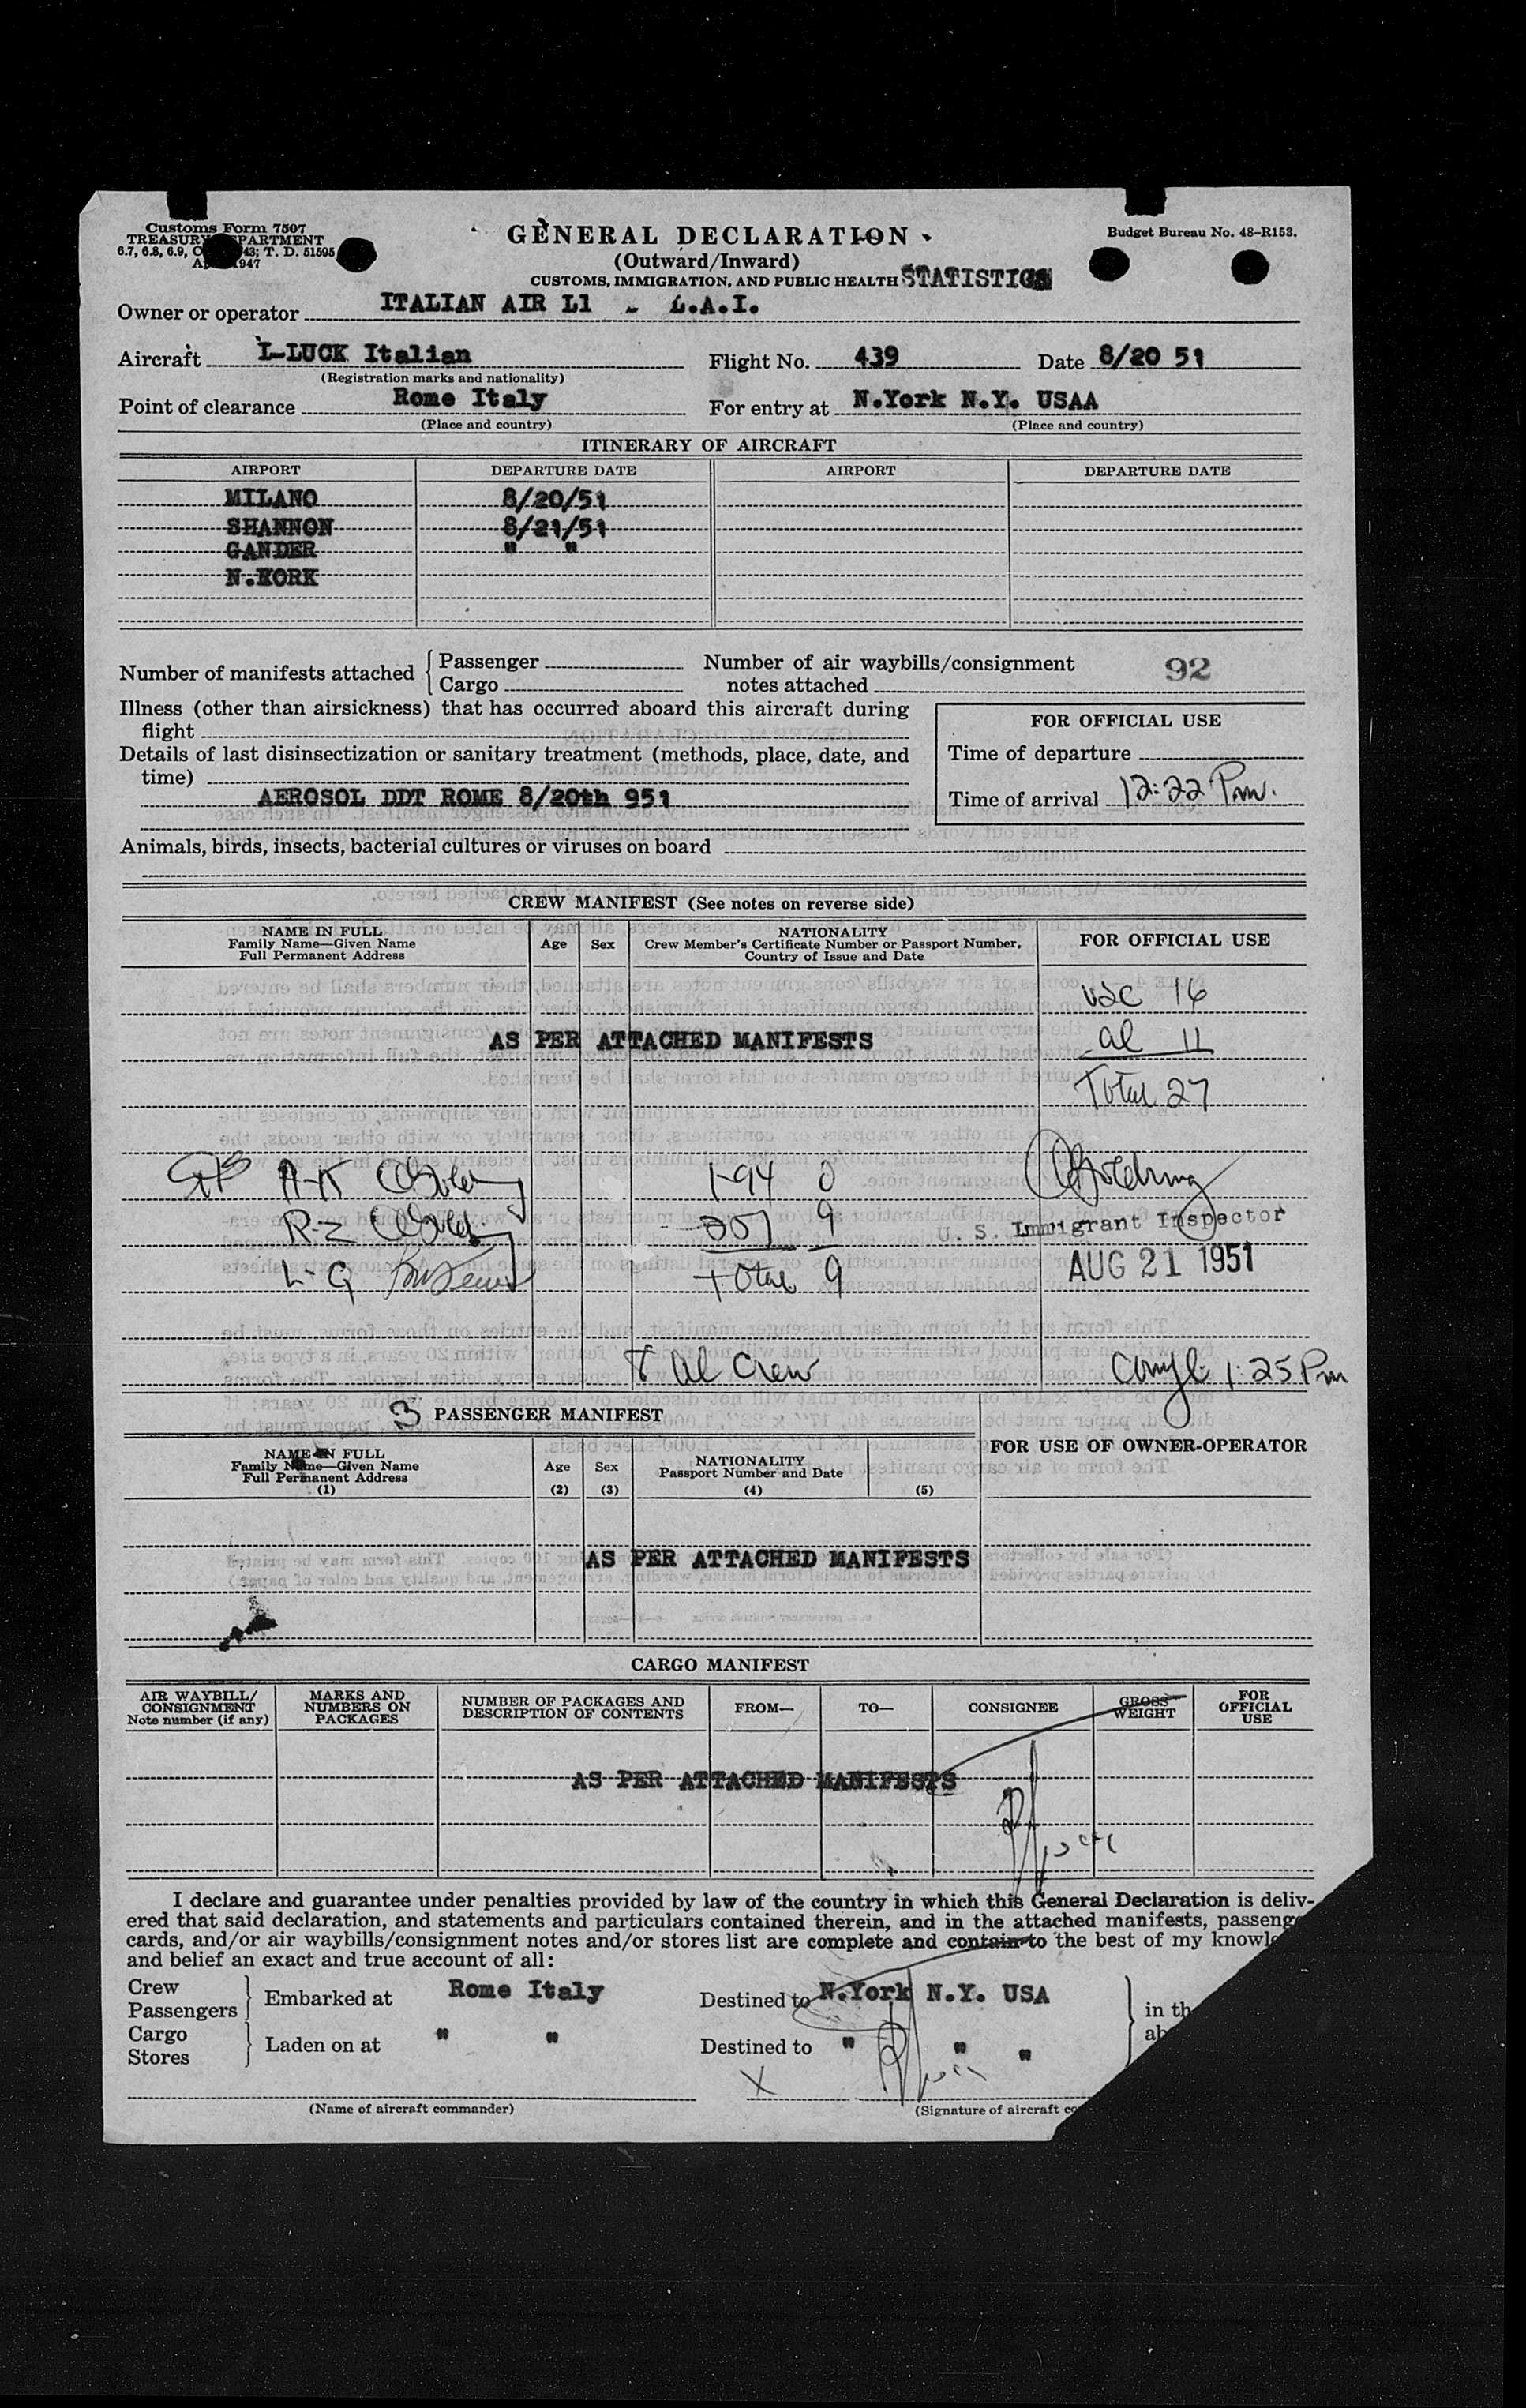 Customs Form 7507
TREASURY DEPARTMENT
6.7, 6.8, 6.9, C 43; T. D. 51595
1947
GENERAL DECLARATION
(Outward/Inward)
CUSTOMS, IMMIGRATION, AND PUBLIC HEALTH STATISTICS
Budget Bureau No. 48-R153.
Owner or operator ITALIAN AIR L1 - L.A.I.
Aircraft I-LUCK Italian Flight No. 439 Date 8/20 51
(Registration marks and nationality)
Point of clearance Rome Italy For entry at N.York N.Y. USAA
(Place and country) (Place and country)
ITINERARY OF AIRCRAFT
AIRPORT DEPARTURE DATE AIRPORT DEPARTURE DATE
MILANO 8/20/51
SHANNON 8/21/51
GANDER " "
N.YORK
Number of manifests attached Passenger
Cargo
Number of air waybills/consignment
notes attached
92
Illness (other than airsickness) that has occurred aboard this aircraft during
flight
Details of last disinsectization or sanitary treatment (methods, place, date, and
time)
AEROSOL DDT ROME 8/20th 951
FOR OFFICIAL USE
Time of departure
Time of arrival 12:22 Pm.
Animals, birds, insects, bacterial cultures or viruses on board
CREW MANIFEST (See notes on reverse side)
NAME IN FULL
Family Name—Given Name
Full Permanent Address
Age Sex
NATIONALITY
Crew Member's Certificate Number or Passport Number,
Country of Issue and Date
FOR OFFICIAL USE
USC 16
AS PER ATTACHED MANIFESTS
al 11
Total 27
A-K
I-94 0
R-Z
257 9
U. S. Immigrant Inspector
L-Q
Total 9
AUG 21 1951
8 al Crew
Compl. 1:25 Pm
3 PASSENGER MANIFEST
NAME IN FULL
Family Name—Given Name
Full Permanent Address
(1)
Age
(2)
Sex
(3)
NATIONALITY
Passport Number and Date
(4) (5)
FOR USE OF OWNER-OPERATOR
AS PER ATTACHED MANIFESTS
CARGO MANIFEST
AIR WAYBILL/
CONSIGNMENT
Note number (if any)
MARKS AND
NUMBERS ON
PACKAGES
NUMBER OF PACKAGES AND
DESCRIPTION OF CONTENTS
FROM—
TO—
CONSIGNEE
GROSS
WEIGHT
FOR
OFFICIAL
USE
AS PER ATTACHED MANIFESTS
I declare and guarantee under penalties provided by law of the country in which this General Declaration is deliv-
ered that said declaration, and statements and particulars contained therein, and in the attached manifests, passenge
cards, and/or air waybills/consignment notes and/or stores list are complete and contain to the best of my knowle
and belief an exact and true account of all:
Crew
Passengers
Embarked at Rome Italy Destined to N.York N.Y. USA
in th
Cargo
Stores
Laden on at " " Destined to " " "
ab
X
(Name of aircraft commander) (Signature of aircraft co